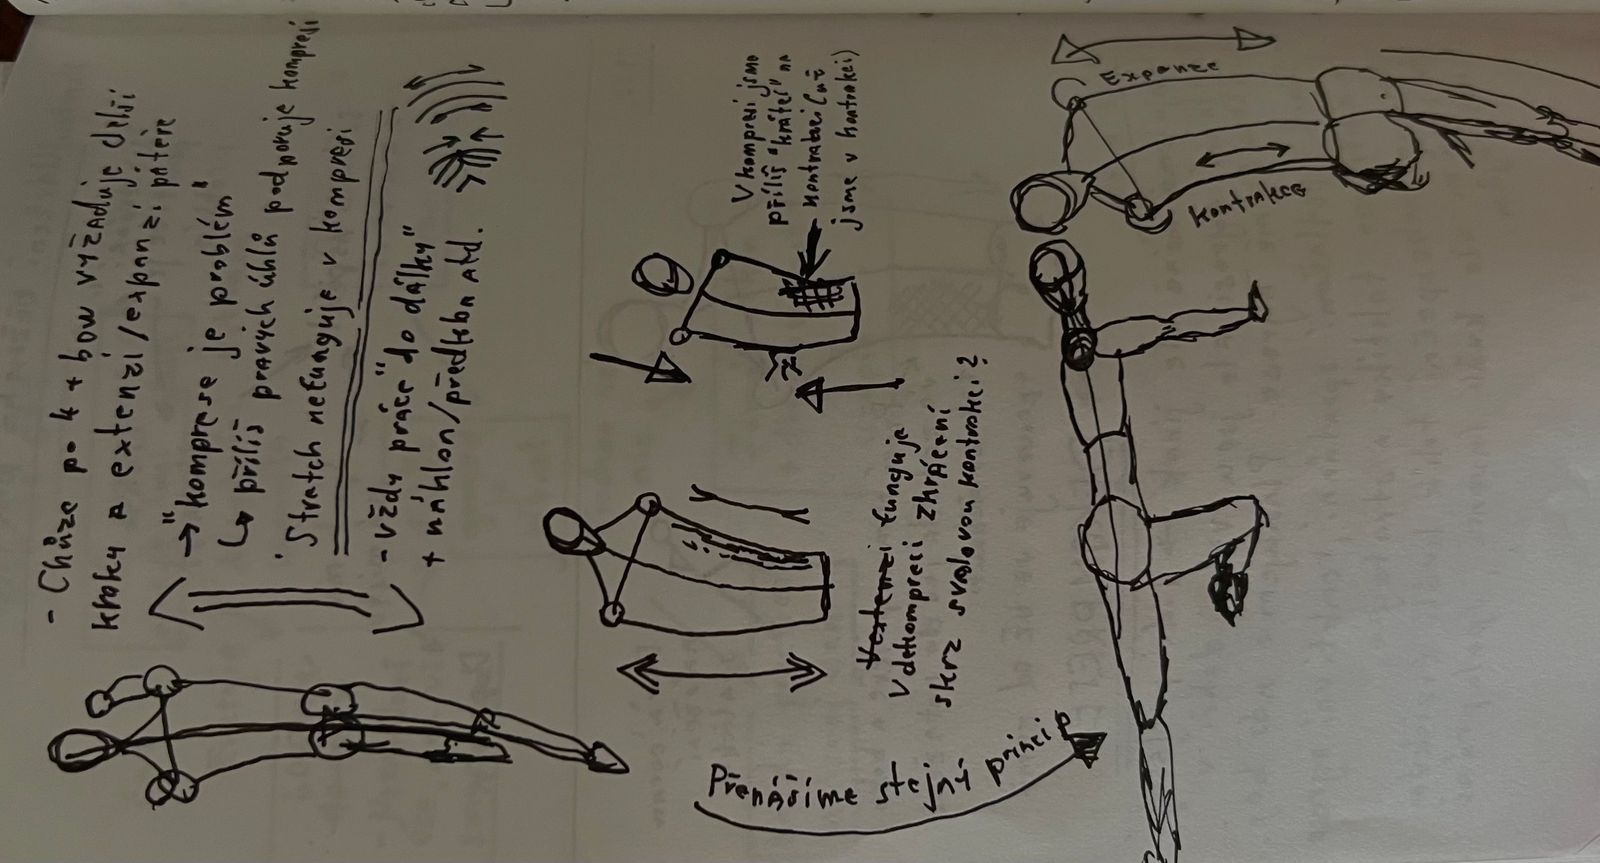 - Chůze po 4 + bow vyžaduje delší
kroky a extenzi/expanzi páteře
→ "komprese je problém"
↳ příliš pravých úhlů podporuje kompresi
Stratch nefunguje v kompresi
- vždy práce "do dálky"
+ náhlon/předloba atd.
V kompresi jsme
příliš "krátcí" na
kontrakci (už
jsme v kontrakci)
V extenzi funguje
V dekompresi zkrácení
skrz svalovou kontrakci?
Přenášíme stejný princip
Expanze
kontrakce